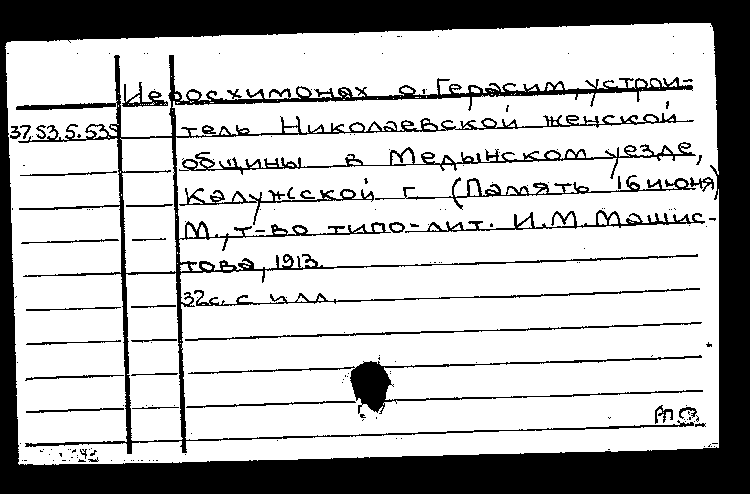 Иеросхимонах о. Герасим, устрои-
37.53.5.535 тель Николаевской женской
общины в Медынском уезде,
Калужской г. (Память 16 июня)
М., т-во типо-лит. И.М. Машис-
това, 1913.
32с. с илл.